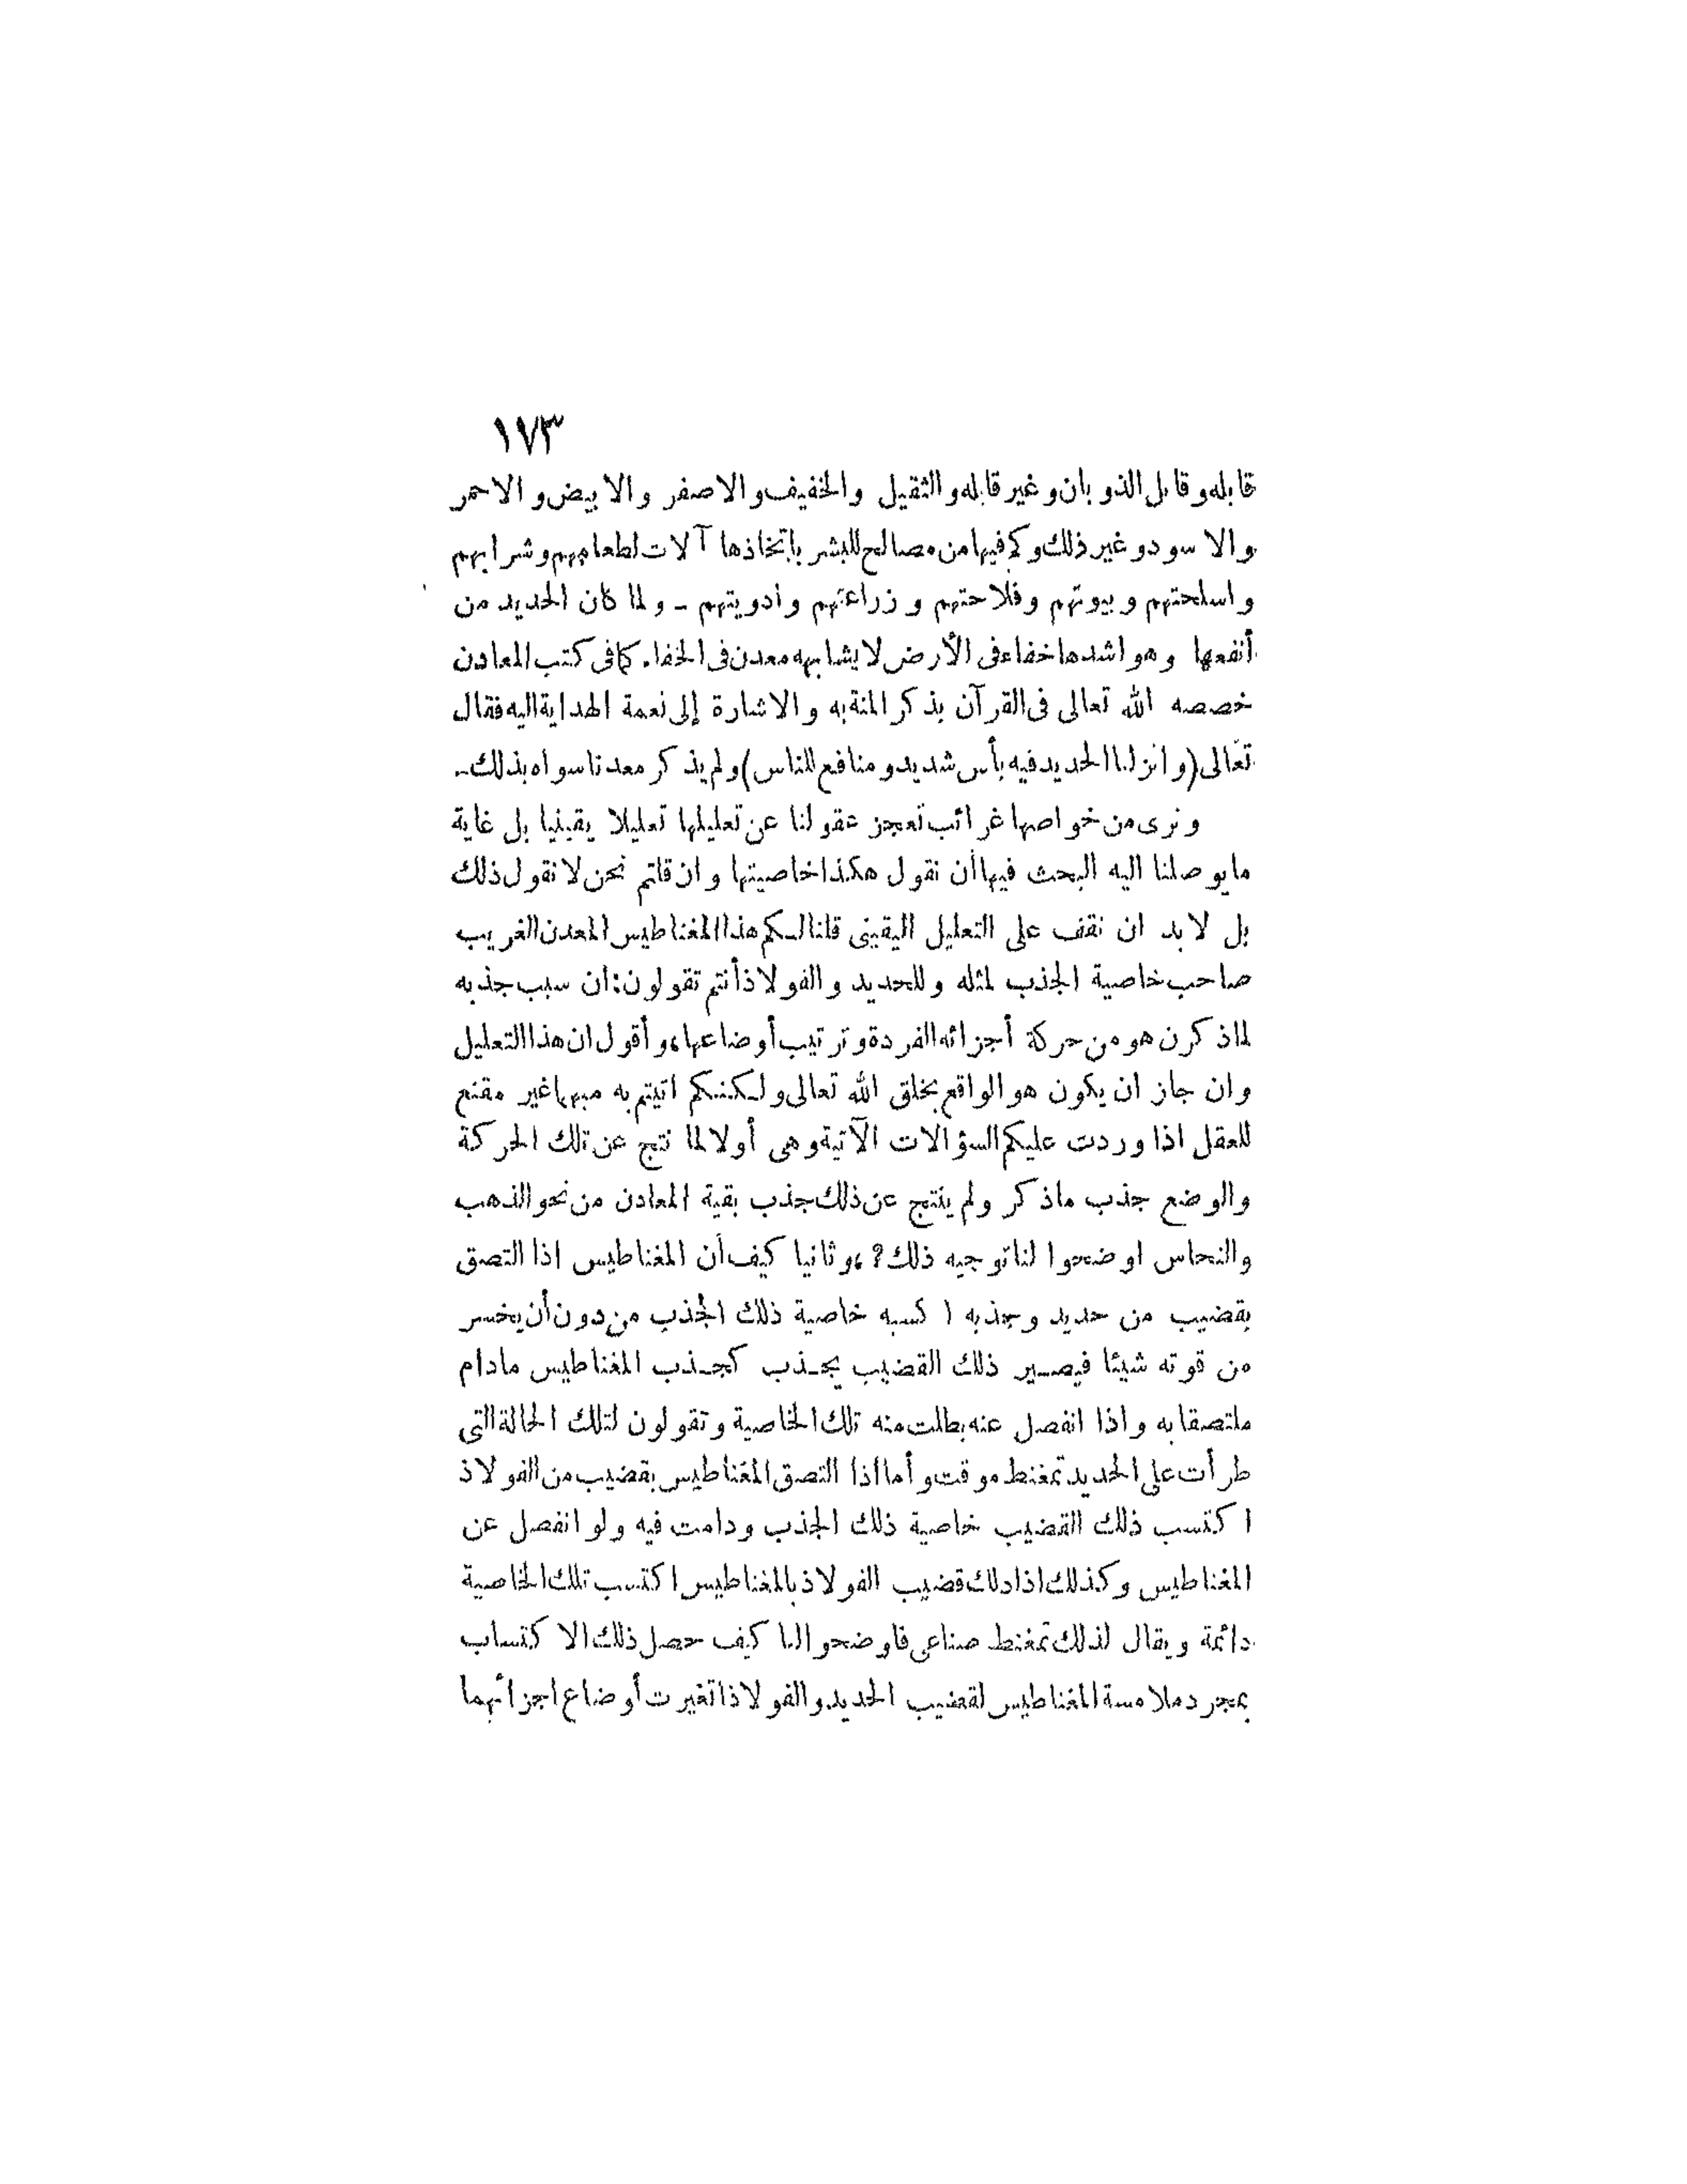 ١٧٣
قابله وقابل الذوبان وغير قابله والثقيل والخفيف والاصفر والابيض والاحمر
والاسود وغير ذلك وكم فيها من مصالح للبشر باتخاذها آلات لطعامهم وشرابهم
واسلحتهم وبيوتهم وفلاحتهم وزراعتهم وأدويتهم - ولما كان الحديد من
أنفعها وهو اشدها خفاء فى الأرض لا يشابهه معدن فى الخفاء كما فى كتب المعادن
خصصه الله تعالى فى القرآن بذكر المنة به والاشارة إلى نعمة الهداية اليه فقال
تعالى (وانزلنا الحديد فيه بأس شديد ومنافع للناس) ولم يذكر معدنا سواه بذلك -
ونرى من خواصها غرائب تعجز عقولنا عن تعليلها تعليلا يقينيا بل غاية
ما يوصلنا اليه البحث فيها أن نقول هكذا خاصيتها وان قلتم نحن لا نقول ذلك
بل لا بد ان نقف على التعليل اليقينى قلنا لكم هذا المغناطيس المعدن الغريب
صاحب خاصية الجذب لمثله وللحديد والفولاذ أنتم تقولون: ان سبب جذبه
لما ذكرن هو من حركة أجزائه الفردة وترتيب أوضاعها، وأقول ان هذا التعليل
وان جاز ان يكون هو الواقع بخلق الله تعالى ولكنكم اتيتم به مبهما غير مقنع
للعقل اذا وردت عليكم السؤالات الآتية وهى أولا لما نتج عن تلك الحركة
والوضع جذب ما ذكر ولم ينتج عن ذلك جذب بقية المعادن من نحو الذهب
والنحاس اوضحوا لنا توجيه ذلك؟، وثانيا كيف أن المغناطيس اذا التصق
بقضيب من حديد وجذبه اكسبه خاصية ذلك الجذب من دون أن يخسر
من قوته شيئا فيصير ذلك القضيب يجذب كجذب المغناطيس مادام
ملتصقا به واذا انفصل عنه بطلت منه تلك الخاصية وتقولون لتلك الحالة التى
طرأت على الحديد تمغنط موقت وأما اذا التصق المغناطيس بقضيب من الفولاذ
اكتسب ذلك القضيب خاصية ذلك الجذب ودامت فيه ولو انفصل عن
المغناطيس وكذلك اذا دلك قضيب الفولاذ بالمغناطيس اكتسب تلك الخاصية
دائمة ويقال لذلك تمغنط صناعى فاوضحوا لنا كيف حصل ذلك الاكتساب
بمجرد ملامسة المغناطيس لقضيب الحديد والفولاذ اتغيرت أوضاع اجزائهما